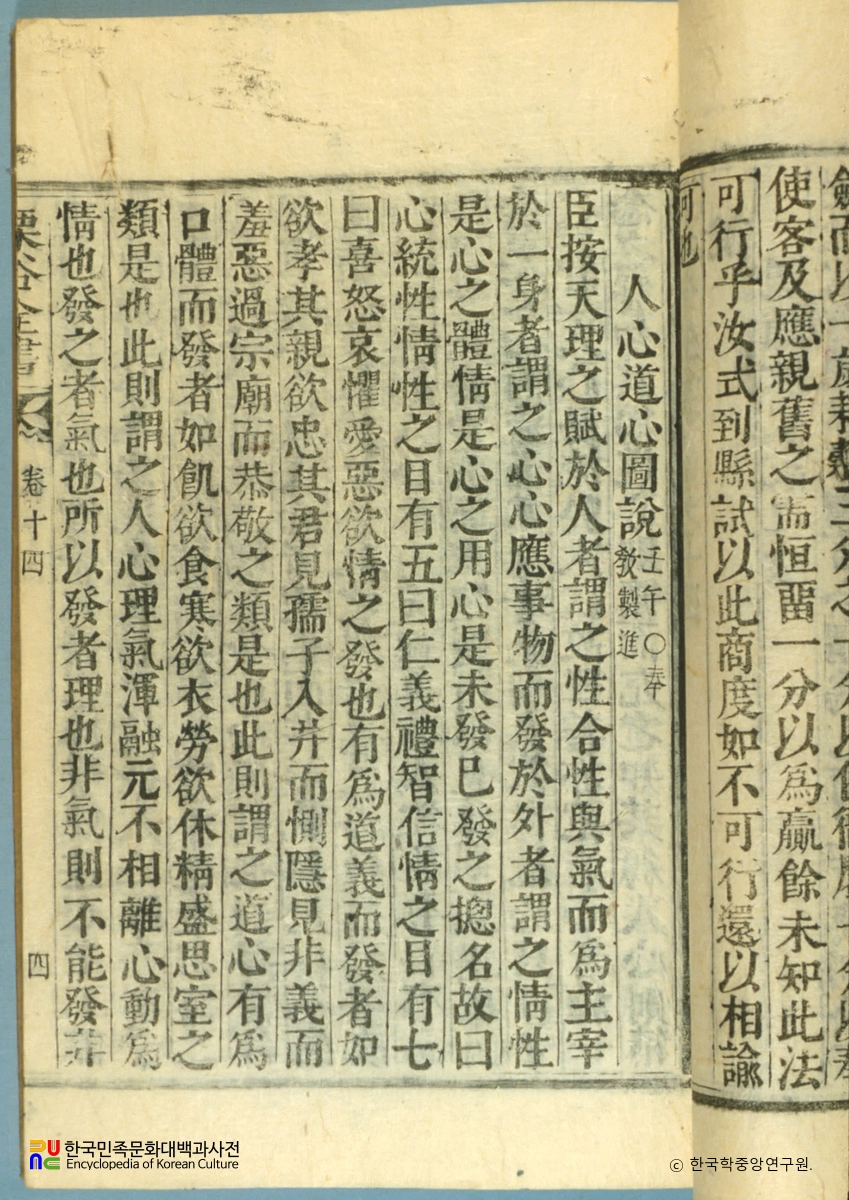 使客及應親舊之需恒留一分以爲贏餘未知此法
可行乎汝式到縣試以此商度如不可行還以相諭
可也
人心道心圖說 壬午○奉
敎製進
臣按天理之賦於人者謂之性合性與氣而爲主宰
於一身者謂之心心應事物而發於外者謂之情性
是心之體情是心之用心是未發已發之摠名故曰
心統性情性之目有五曰仁義禮智信情之目有七
曰喜怒哀懼愛惡欲情之發也有爲道義而發者如
欲孝其親欲忠其君見孺子入井而惻隱見非義而
羞惡過宗廟而恭敬之類是也此則謂之道心有爲
口體而發者如飢欲食寒欲衣勞欲休精盛思室之
類是也此則謂之人心理氣渾融元不相離心動爲
情也發之者氣也所以發者理也非氣則不能發非
栗谷全書 卷十四 四
한국민족문화대백과사전
Encyclopedia of Korean Culture
ⓒ 한국학중앙연구원.